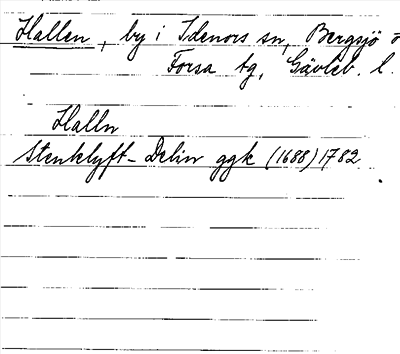 Hallen, by i Idenors sn, Bergsjö o
Forsa tg, Gävleb. l.
Halln
Stenklyft-Delin ggk (1688) 1782